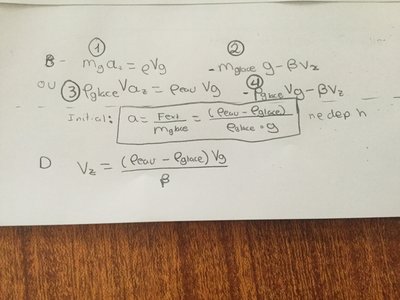 ① ②
B - m_g a_z = ρVg - m_glace g - βV_z
OU ③ ρ_glace V a_z = ρ_eau Vg ④ - ρ_glace Vg - βV_z
Initial: a = F_ext / m_glace = (ρ_eau - ρ_glace) / ρ_glace · g ne dep h
D V_z = (ρ_eau - ρ_glace) Vg / β